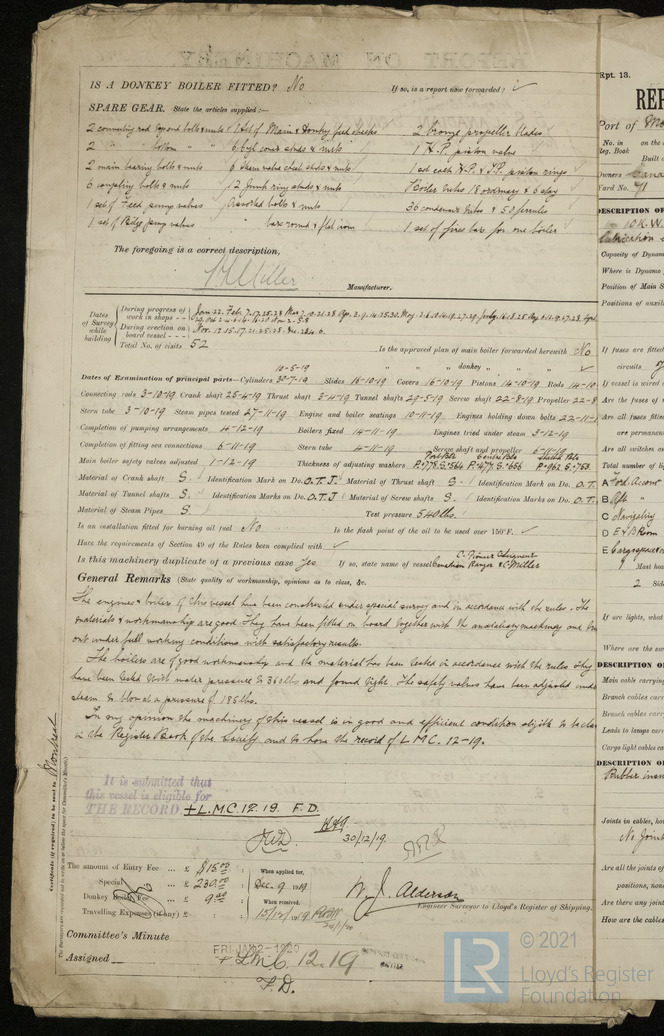 IS A DONKEY BOILER FITTED? No If so, is a report now forwarded? ✓
SPARE GEAR. State the articles supplied :—
2 connecting rod top end bolts & nuts 1 set of Main & Donkey feed checks 2 bronze propeller blades
2 " " bottom " " 6 cyl cover studs & nuts 1 H.P. piston valve
2 main bearing bolts & nuts 6 steam valve chest studs & nuts 1 set each H.P. & I.P. piston rings
6 coupling bolts & nuts 12 junk ring studs & nuts Boiler tubes 18 ordinary & 6 stay
1 set of Feed pump valves Assorted bolts & nuts 36 condenser tubes & 50 ferrules
1 set of Bilge pump valves " bars round & flat iron 1 set of fire bars for one boiler
The foregoing is a correct description,
Miller
Manufacturer.
Dates of Survey while building
During progress of work in shops - -
During erection on board vessel - - - Nov. 12.15.17.21.25.28. Dec. 2.4.6.
Total No. of visits 52
Is the approved plan of main boiler forwarded herewith No
" " " donkey " " ✓
Dates of Examination of principal parts—Cylinders 10-5-19 30-7-19 Slides 16-10-19 Covers 16-10-19 Pistons 14-10-19 Rods 14-10
Connecting rods 3-10-19 Crank shaft 25-4-19 Thrust shaft 3-4-19 Tunnel shafts 29-5-19 Screw shaft 22-8-19 Propeller 22-8
Stern tube 3-10-19 Steam pipes tested 27-11-19 Engine and boiler seatings 10-11-19 Engines holding down bolts 22-11-1
Completion of pumping arrangements 4-12-19 Boilers fixed 14-11-19 Engines tried under steam 3-12-19
Completion of fitting sea connections 6-11-19 Stern tube 4-11-19 Screw shaft and propeller 6-11-19
Main boiler safety valves adjusted 1-12-19 Thickness of adjusting washers Port Blr P.778 S.564 Centre Blr P.477 S.656 Starbd Blr P.962 S.753
Material of Crank shaft S. Identification Mark on Do. O.T.J. Material of Thrust shaft S. Identification Mark on Do. O.T.
Material of Tunnel shafts S. Identification Marks on Do. O.T.J Material of Screw shafts S. Identification Marks on Do. O.T.
Material of Steam Pipes S. Test pressure 540 lbs.
Is an installation fitted for burning oil fuel No Is the flash point of the oil to be used over 150°F. ✓
Have the requirements of Section 49 of the Rules been complied with ✓
Is this machinery duplicate of a previous case Yes If so, state name of vessel C. Pioneer Canadian Ranger & C. Miller
General Remarks (State quality of workmanship, opinions as to class, &c.
The engines & boilers of this vessel have been constructed under special survey and in accordance with the rules. The
materials & workmanship are good. They have been fitted on board together with the auxiliary machinery and
out under full working conditions with satisfactory results.
The boilers are of good workmanship and the material has been tested in accordance with the rules. They
have been tested with water pressure to 360 lbs and found tight. The safety valves have been adjusted unde
steam to blow at a pressure of 185 lbs.
In my opinion the machinery of this vessel is in good and efficient condition eligible to be clas
in the Register Book of the Society and to have the record of L.M.C. 12-19.
Certificate (if required) to be sent to Montreal
(The Surveyors are requested not to write on or below the space for Committee's Minute.)
It is submitted that
this vessel is eligible for
THE RECORD. + L.M.C. 12.19. F.D.
30/12/19.
The amount of Entry Fee ... £ $15.00
Special ... £ 230.00
Donkey Boiler Fee ... £ 9.00
Travelling Expenses (if any) £
When applied for, Dec. 9 1919
When received, 15/12/1919
Wm. J. Alderson
Engineer Surveyor to Lloyd's Register of Shipping.
Committee's Minute
FRI. JAN. 2 - 1920
Assigned + L.M.C. 12.19
F.D.
© 2021
LR
Lloyd's Register
Foundation
Rpt. 13.
REP
Port of Mo
No. in Reg. Book
on the
Built
Owners Cana
Yard No. 71
DESCRIPTION OF
10 K.W.
Capacity of Dynamo
Where is Dynamo
Position of Main S
Positions of auxil
If fuses are fitted
circuits
If vessel is wired
Are the fuses of
Are all fuses fitted
are permanen
Are all switches a
Total number of li
A Ford Accom
B Aft "
C Navigating
D E & B Room
E Cargo space
Mast hea
2 Side
If arc lights, what
Where are the sw
DESCRIPTION O
Main cable carrying
Branch cables carr
Branch cables carry
Leads to lamps carr
Cargo light cables ca
DESCRIPTION OF
Rubber insu
Joints in cables, how
No Joint
Are all the joints of
positions, non
Are there any joint
How are the cables